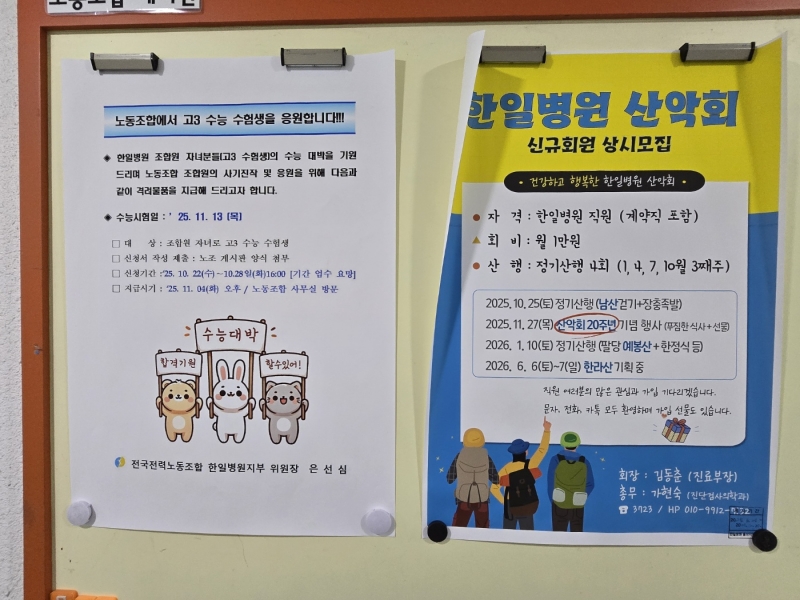 노동조합에서 고3 수능 수험생을 응원합니다!!!
◈ 한일병원 조합원 자녀분들(고3 수험생)의 수능 대박을 기원
드리며 노동조합 조합원의 사기진작 및 응원을 위해 다음과
같이 격려물품을 지급해 드리고자 합니다.
◈ 수능시험일 : ' 25. 11. 13 (목)
□ 대 상 : 조합원 자녀로 고3 수능 수험생
□ 신청서 작성 제출 : 노조 게시판 양식 첨부
□ 신청기간 :'25. 10. 22(수)~10.28일(화)16:00 [기간 엄수 요망]
□ 지급시기 : '25. 11. 04(화) 오후 / 노동조합 사무실 방문
수능대박
합격기원
할수있어!
전국전력노동조합 한일병원지부 위원장 은 선 심
한일병원 산악회
신규회원 상시모집
• 건강하고 행복한 한일병원 산악회 •
자 격 : 한일병원 직원 (계약직 포함)
회 비 : 월 1만원
산 행 : 정기산행 4회 (1, 4, 7, 10월 3째주)
2025. 10. 25(토) 정기산행 (남산걷기+장충족발)
2025. 11. 27(목) 산악회 20주년 기념 행사 (푸짐한 식사+선물)
2026. 1. 10(토) 정기산행 (팔당 예봉산 + 한정식 등)
2026. 6. 6(토)~7(일) 한라산 기획 중
직원 여러분의 많은 관심과 가입 기다리겠습니다.
문자, 전화, 카톡 모두 환영하며 가입 선물도 있습니다.
회장 : 김동춘 (진료부장)
총무 : 가현숙 (진단검사의학과)
☎ 3723 / HP 010-9912-